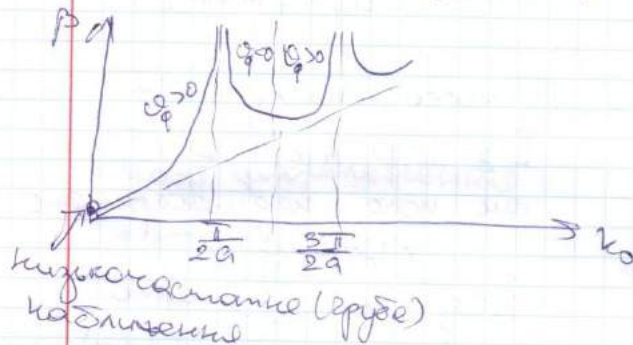 β
υφ>0
υφ<0
υφ>0
π/2a
3π/2a
k₀
низькочастотне (грубе)
наближення